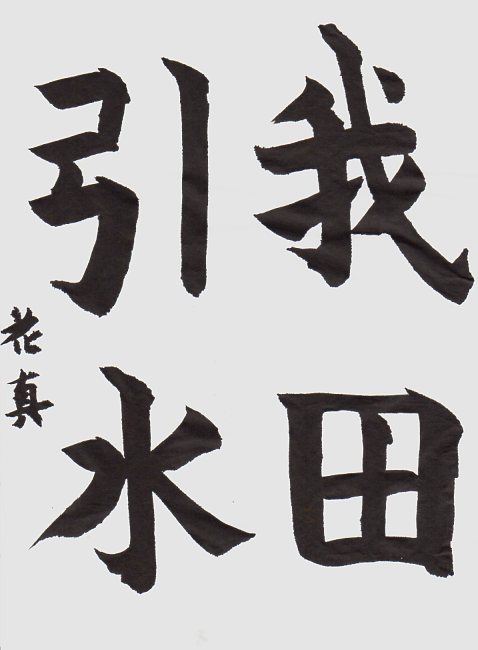 我田
引水
花真